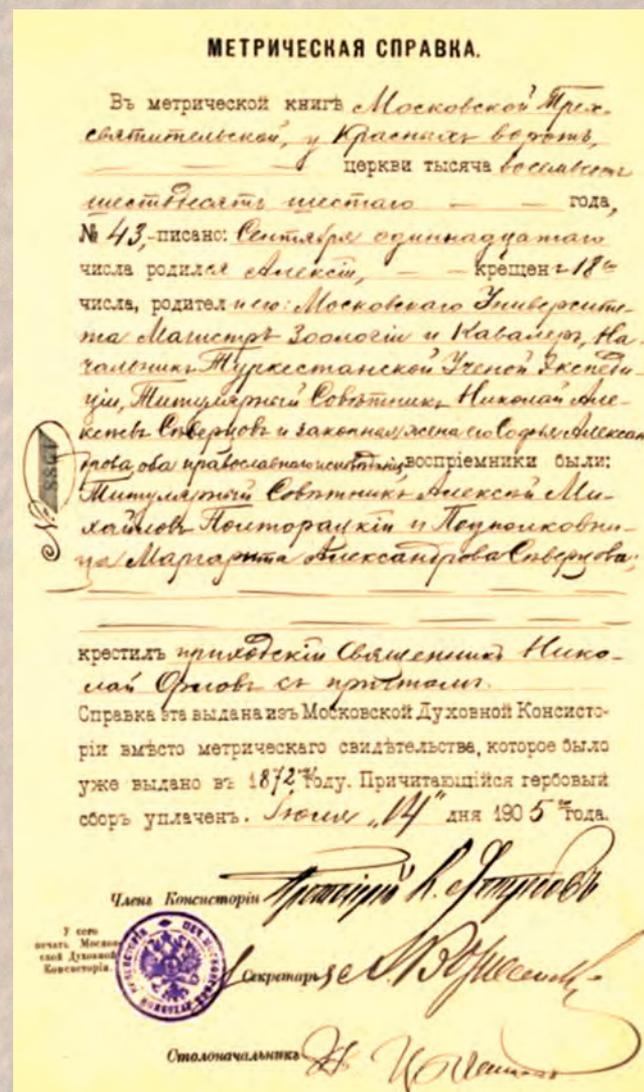 МЕТРИЧЕСКАЯ СПРАВКА.
Въ метрической книгѣ Московской Трех-
святительской, у Красныхъ воротъ,
церкви тысяча восемьсотъ
шестьдесятъ шестаго — — года,
№ 43, писано: Сентября одиннадцатаго
числа родился Алексій, — — крещенъ 18го
числа, родители его: Московскаго Университе-
та Магистръ Зоологіи и Кавалеръ, На-
чальникъ Туркестанской Ученой Экспеди-
ціи, Титулярный Совѣтникъ Николай Але-
ксѣевъ Сѣверцовъ и законная жена его Софья Александ
рова, оба православнаго исповѣданія, воспріемники были:
Титулярный Совѣтникъ Алексѣй Ми-
хайловъ Полторацкій и Подполковни-
ца Маргарита Александрова Сѣверцова;
крестилъ приходскій Священникъ Нико-
лай Орловъ съ причтомъ.
Справка эта выдана изъ Московской Духовной Консисто-
ріи вмѣсто метрическаго свидѣтельства, которое было
уже выдано въ 1872 году. Причитающійся гербовый
сборъ уплаченъ. „14" дня 1905 года.
№
Членъ Консисторіи Протоіерей
У сего
печать Москов-
ской Духовной
Консисторіи.
Секретарь
Столоначальникъ